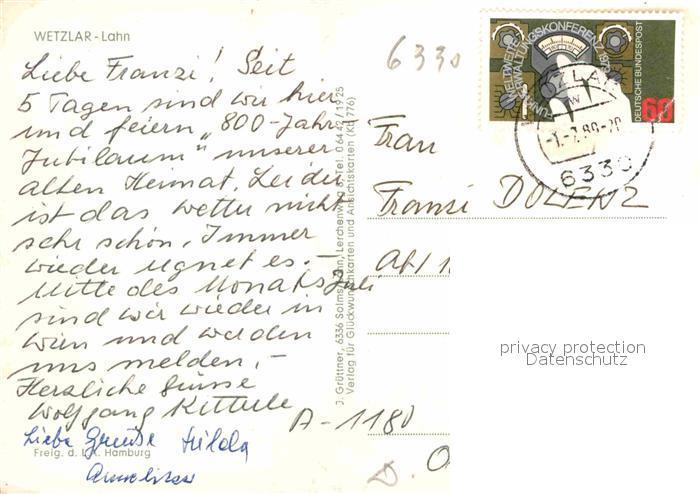 WETZLAR - Lahn
Liebe Franzi! Seit
5 Tagen sind wir hier
und feiern „800-Jahr
Jubiläum" unserer
alten Heimat. Leider
ist das Wetter nicht
sehr schön. Immer
wieder regnet es. –
Mitte des Monats Juli
sind wir wieder in
Wien und werden
uns melden. –
Herzliche Grüsse
Wolfgang
Liebe Grüsse
Freig. d. L. A. Hamburg
J. Grüttner, 6336 Solms/Lahn, Lerchenweg 6, Tel. 06442/1925
Verlag für Glückwunschkarten und Ansichtskarten (KH 776)
6330
WELTWEITE
FUNKVERWALTUNGSKONFERENZ
DEUTSCHE BUNDESPOST
60
6330
Frau
Franzi DOLENZ
A-1180
privacy protection
Datenschutz